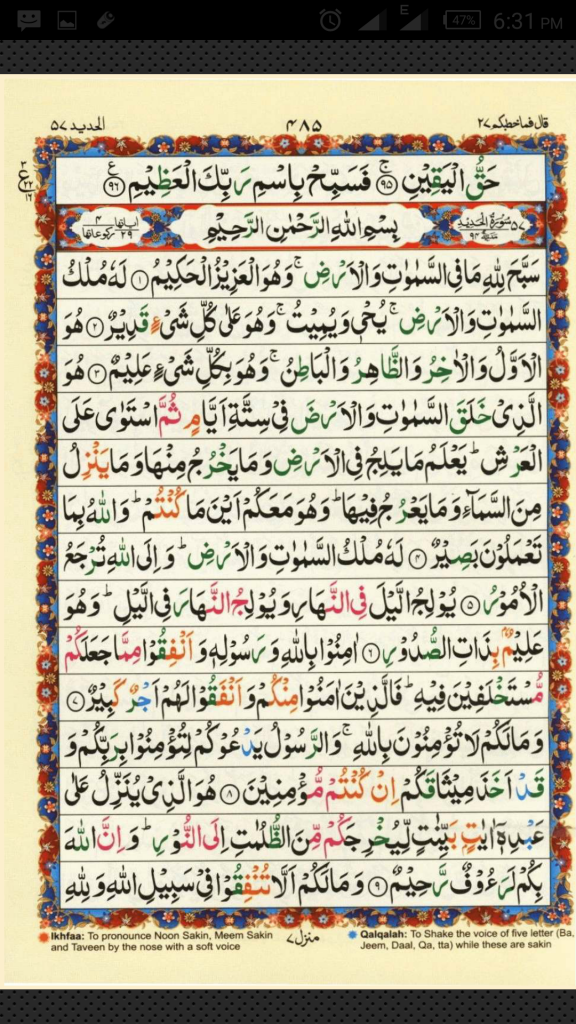 E 47% 6:31 PM
الحديد ٥٧ ٤٨٥ قال فماخطبكم ٢٧
حَقُّ الْيَقِيْنِ ۚ‏﴿۹۵﴾ فَسَبِّحْ بِاسْمِ رَبِّكَ الْعَظِيْمِ ﴿۹۶﴾
٥٧ سُوْرَةُ الْحَدِيْدِ ٩٤ بِسْمِ اللّٰهِ الرَّحْمٰنِ الرَّحِيْمِ اٰيَاتُهَا ٢٩ رُكُوْعَاتُهَا ٤
سَبَّحَ لِلّٰهِ مَا فِى السَّمٰوٰتِ وَالْاَرْضِ ۚ وَهُوَ الْعَزِيْزُ الْحَكِيْمُ ﴿۱﴾ لَهٗ مُلْكُ
السَّمٰوٰتِ وَالْاَرْضِ ۚ يُحْىٖ وَيُمِيْتُ ۚ وَهُوَ عَلٰى كُلِّ شَىْءٍ قَدِيْرٌ ﴿۲﴾ هُوَ
الْاَوَّلُ وَالْاٰخِرُ وَالظَّاهِرُ وَالْبَاطِنُ ۚ وَهُوَ بِكُلِّ شَىْءٍ عَلِيْمٌ ﴿۳﴾ هُوَ
الَّذِىْ خَلَقَ السَّمٰوٰتِ وَالْاَرْضَ فِىْ سِتَّةِ اَيَّامٍ ثُمَّ اسْتَوٰى عَلَى
الْعَرْشِ ؕ يَعْلَمُ مَا يَلِجُ فِى الْاَرْضِ وَمَا يَخْرُجُ مِنْهَا وَمَا يَنْزِلُ
مِنَ السَّمَآءِ وَمَا يَعْرُجُ فِيْهَا ؕ وَهُوَ مَعَكُمْ اَيْنَ مَا كُنْتُمْ ؕ وَاللّٰهُ بِمَا
تَعْمَلُوْنَ بَصِيْرٌ ﴿۴﴾ لَهٗ مُلْكُ السَّمٰوٰتِ وَالْاَرْضِ ؕ وَاِلَى اللّٰهِ تُرْجَعُ
الْاُمُوْرُ ﴿۵﴾ يُوْلِجُ الَّيْلَ فِى النَّهَارِ وَيُوْلِجُ النَّهَارَ فِى الَّيْلِ ؕ وَهُوَ
عَلِيْمٌۢ بِذَاتِ الصُّدُوْرِ ﴿۶﴾ اٰمِنُوْا بِاللّٰهِ وَرَسُوْلِهٖ وَاَنْفِقُوْا مِمَّا جَعَلَكُمْ
مُّسْتَخْلَفِيْنَ فِيْهِ ؕ فَالَّذِيْنَ اٰمَنُوْا مِنْكُمْ وَاَنْفَقُوْا لَهُمْ اَجْرٌ كَبِيْرٌ ﴿۷﴾
وَمَا لَكُمْ لَا تُؤْمِنُوْنَ بِاللّٰهِ ۚ وَالرَّسُوْلُ يَدْعُوْكُمْ لِتُؤْمِنُوْا بِرَبِّكُمْ وَ
قَدْ اَخَذَ مِيْثَاقَكُمْ اِنْ كُنْتُمْ مُّؤْمِنِيْنَ ﴿۸﴾ هُوَ الَّذِىْ يُنَزِّلُ عَلٰى
عَبْدِهٖۤ اٰيٰتٍۭ بَيِّنٰتٍ لِّيُخْرِجَكُمْ مِّنَ الظُّلُمٰتِ اِلَى النُّوْرِ ؕ وَاِنَّ اللّٰهَ
بِكُمْ لَرَءُوْفٌ رَّحِيْمٌ ﴿۹﴾ وَمَا لَكُمْ اَلَّا تُنْفِقُوْا فِىْ سَبِيْلِ اللّٰهِ وَلِلّٰهِ
Ikhfaa: To pronounce Noon Sakin, Meem Sakin
and Taveen by the nose with a soft voice
منزل ٧
Qalqalah: To Shake the voice of five letter (Ba,
Jeem, Daal, Qa, tta) while these are sakin